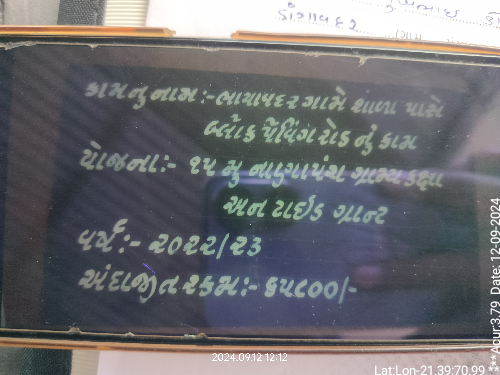 ડાંગાવદર
ગામ
કામનુ નામ:- ભાયાવદર ગામે શાળા પાસે
બ્લોક પેવિંગ રોડ નું કામ
યોજના:- ૧૫ મુ નાણાપંચ ગ્રામ્ય કક્ષા
અન ટાઈડ ગ્રાન્ટ
વર્ષ:- ૨૦૨૨/૨૩
અંદાજીત રકમ:- ૬૫૮૦૦/-
2024.09.12 12:12
Lat:Lon-21.39:70.99
***Acur:3.79 Date: 12-09-2024